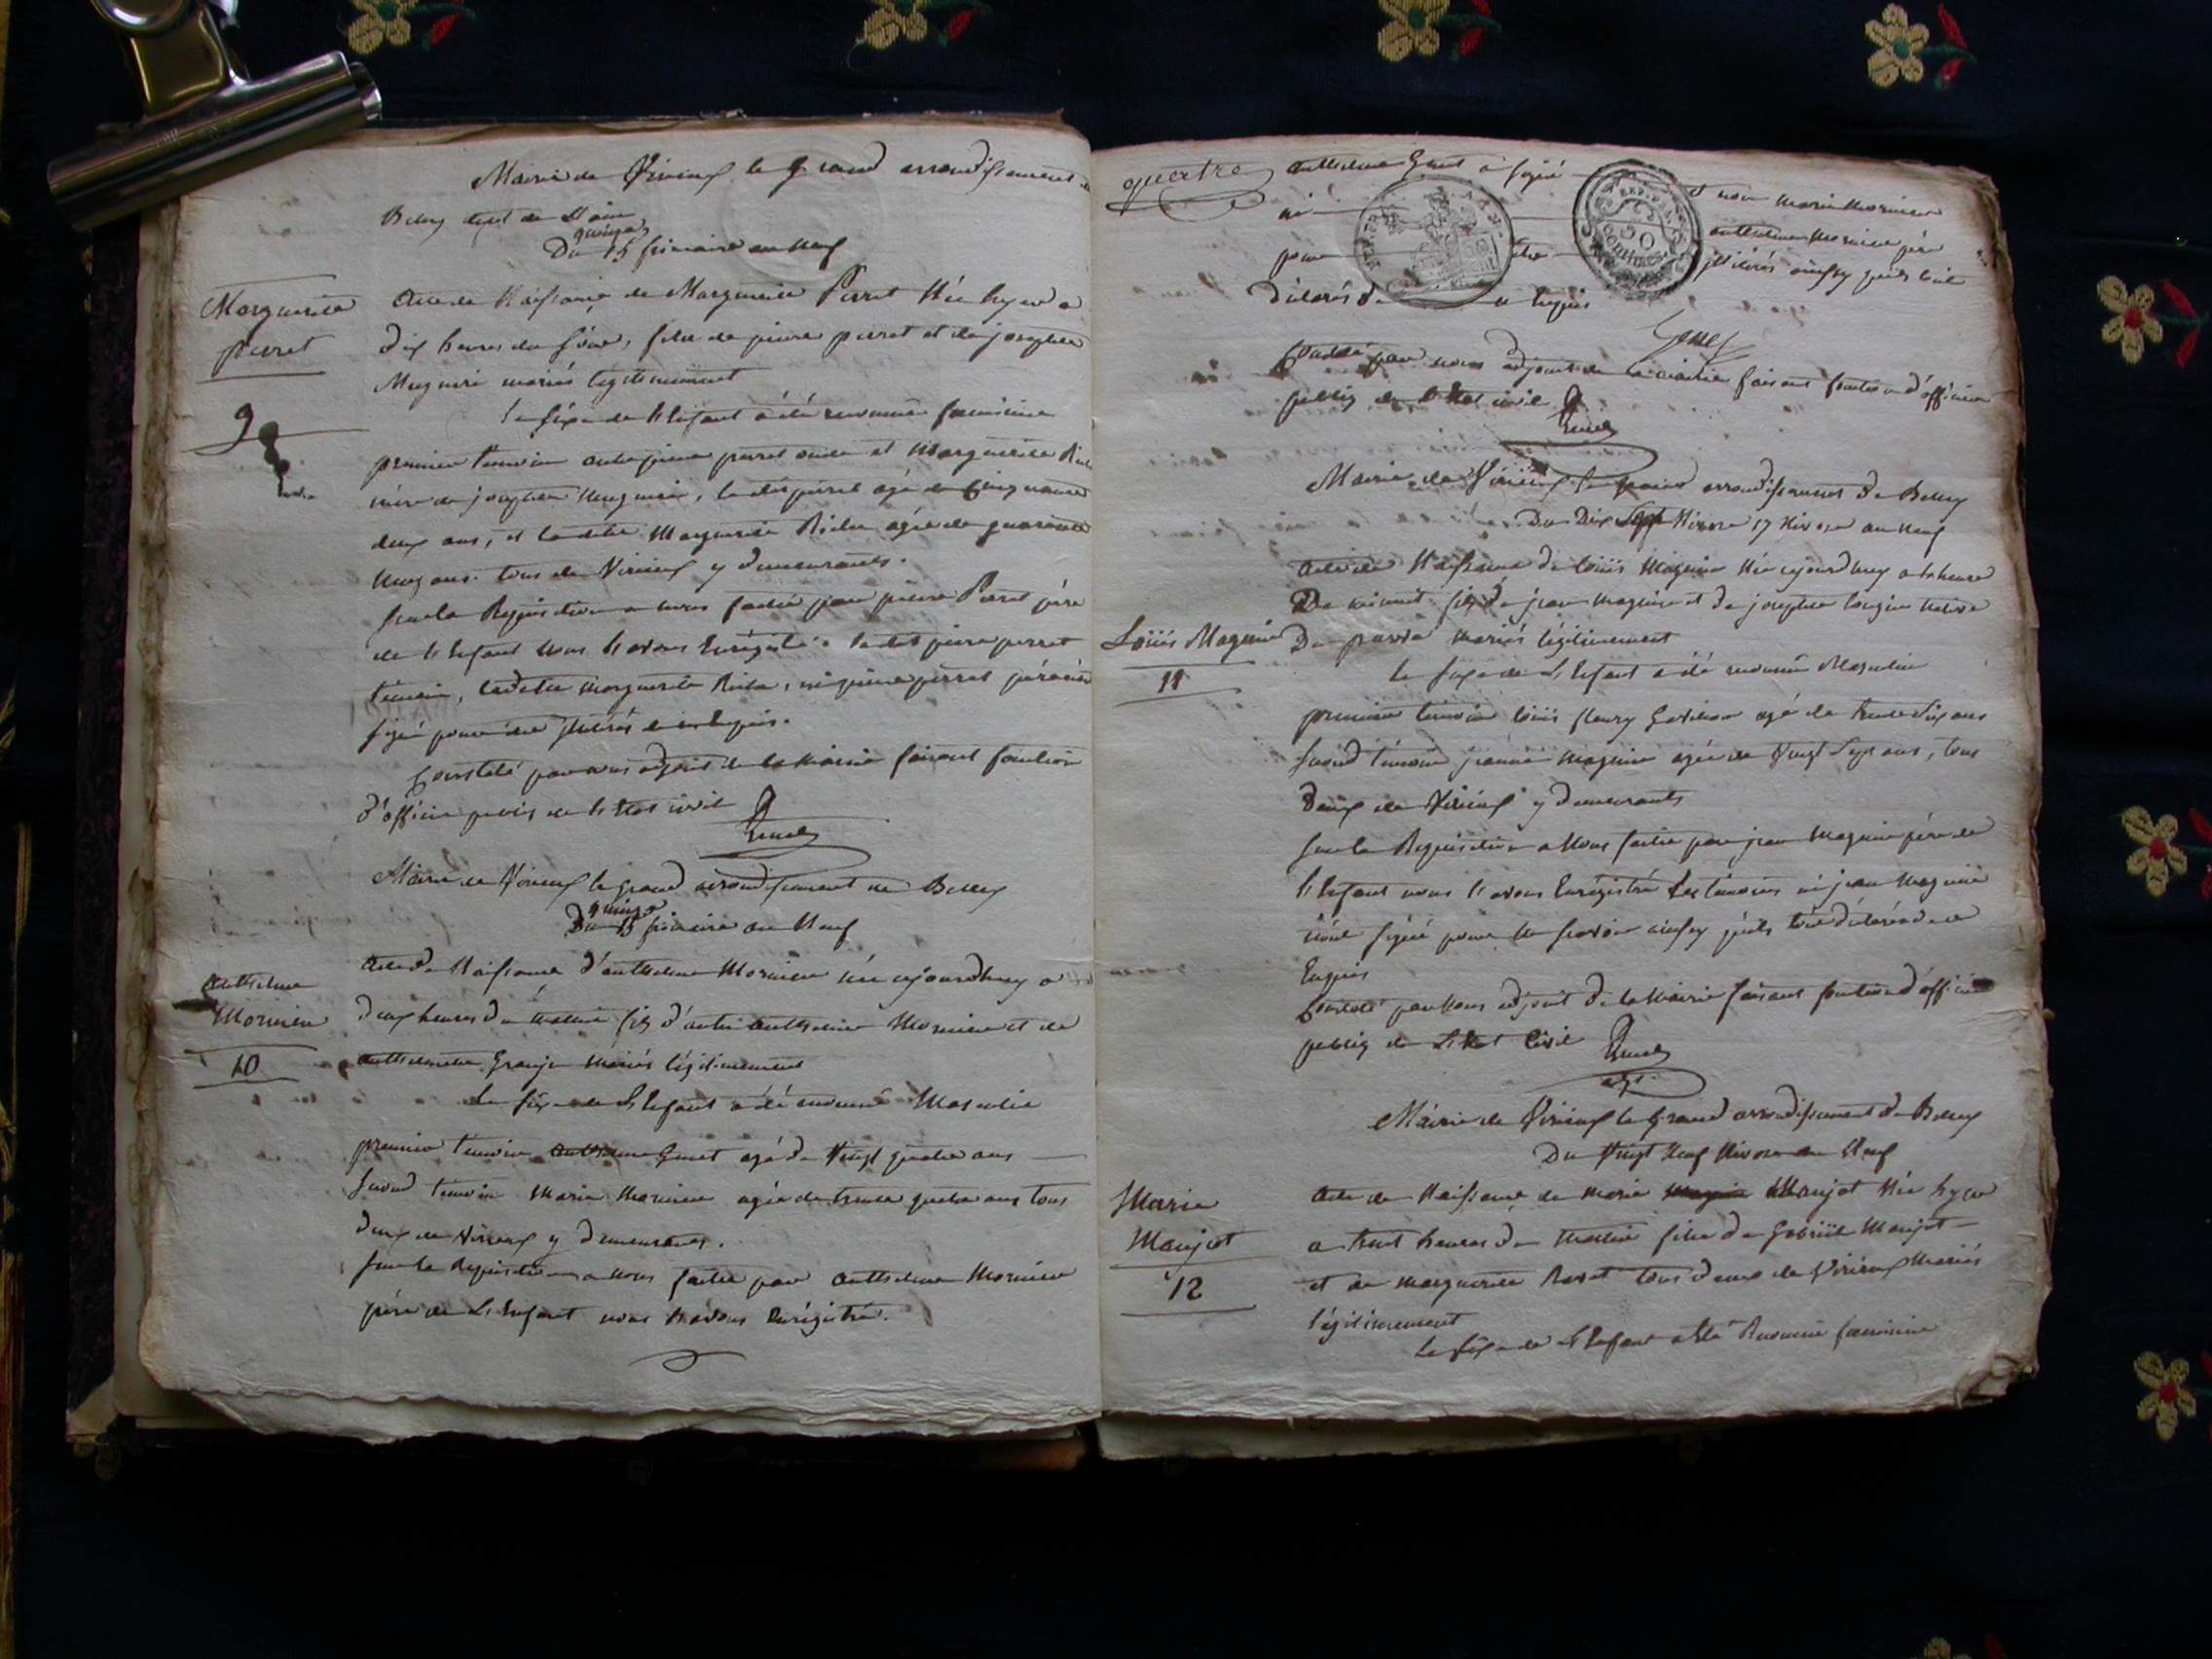 Mairie de Virieux le grand arrondissement de
Belley dept de L'ain
quinze
Du 15 frimaire an neuf
Marguerite
perret
9
Acte de Naissance de Marguerite Perret Née hyer a
dix heures du soir, fille de pierre perret et de josephte
Muguin mariés legitimement
le sexe de l'Enfant a été reconnu feminin
premier temoin autre pierre perret oncle et Marguerite
mère de josephte Muguin, ledit perret agé de Cinquante
deux ans, et ladite Marguerite agée de quarante
neuf ans. tous de Virieux y demeurants.
sur la Requisition a nous faitte par pierre Perret père
de l'Enfant nous l'avons Enregistré. ledit pierre perret
temoin, ladite Marguerite, ni pierre perret père n'ont
signé pour être illiterés de ce Enquis.
Constaté par nous adjoint de la Mairie faisant fonction
d'officier public de l'Etat civil
Mairie de Virieux le Grand arrondissement de Belley
quinze
Du 15 frimaire an Neuf
Anthelme
Mornieu
10
Acte de Naissance d'anthelme Mornieu née cejourdhuy a
deux heures du matin fils d'autre anthelme Mornieu et de
anthelmette Granje Mariés légitimement
Le sexe de L'Enfant a été reconnu Masculin
premier temoin anthelme Genet agé de Vingt quatre ans
second temoin Marie Mornieu agée de trente quatre ans tous
deux de Virieux y demeurants.
sur la Requisition a Nous faitte par anthelme Mornieu
père de L'Enfant nous l'avons Enrégistré.
quatre
anthelme Genet a signé et non Marie Mornieu
ni anthelme Mornieu père
pour être illiterés ainsy qu'ils l'ont
déclarés de ce Enquis
REP. FRA.
50
CENTIMES
Genet
Constaté par nous adjoint de la Mairie faisant fonction d'officier
public de l'Etat civil
Mairie de Virieux le grand arrondissement de Belley
Du Dix Sept Nivose 17 Nivose an neuf
Loüis Magnin
11
Acte de Naissance de Loüis Magnin Née cejourdhuy a heure
De minuit fils de jean Magnin et de josephte
Mariés légitimement
Le sexe de L'Enfant a été reconnu Masculin
premier temoin loüis fleury agé de trente six ans
second temoin jeanne Magnin agée de Vingt Sept ans, tous
deux de Virieux y demeurants
sur la Requisition a Nous faitte par jean Magnin père de
l'Enfant nous l'avons Enrégistré les temoins ni jean Magnin
n'ont signé pour ne sçavoir ainsy qu'ils l'ont déclaré de ce
Enquis
Constaté par Nous adjoint de la Mairie faisant fonction d'officier
public de L'Etat Civil
Mairie de Virieux le Grand arrondissement de Belley
Du Vingt Neuf Nivose an Neuf
Marie
Maujot
12
Acte de Naissance de Marie Maujot Née hyer
a huit heures du Matin fille de Gabriël Maujot
et de Marguerite tous deux de Virieux Mariés
légitimement
Le sexe de L'Enfant a été Reconnu feminin